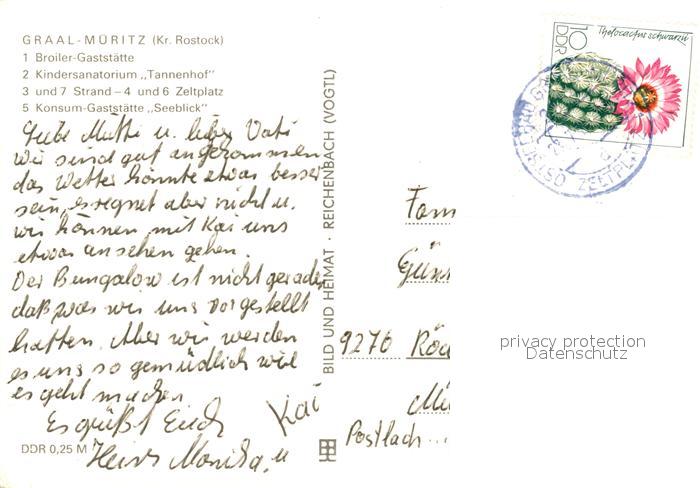 GRAAL-MÜRITZ (Kr. Rostock)
1 Broiler-Gaststätte
2 Kindersanatorium „Tannenhof"
3 und 7 Strand – 4 und 6 Zeltplatz
5 Konsum-Gaststätte „Seeblick"
Liebe Mutti u. lieber Vati
wir sind gut angekommen
das Wetter könnte etwas besser
sein, es regnet aber nicht u.
wir können mit Kai uns
etwas ansehen gehen.
Der Bungalow ist nicht gerade
daß was wir uns vorgestellt
hatten. Aber wir werden
es uns so gemüdlich wie
es geht machen.
Es grüßt Euch
Heinz Monika u
Kai
DDR 0,25 M
BILD UND HEIMAT · REICHENBACH (VOGTL)
10 DDR
Thelocactus schwarzii
OSTSEEBAD GRAAL
ZELTPL
Fam
Gün
9276 Röd
Mü
Postlach...
privacy protection
Datenschutz